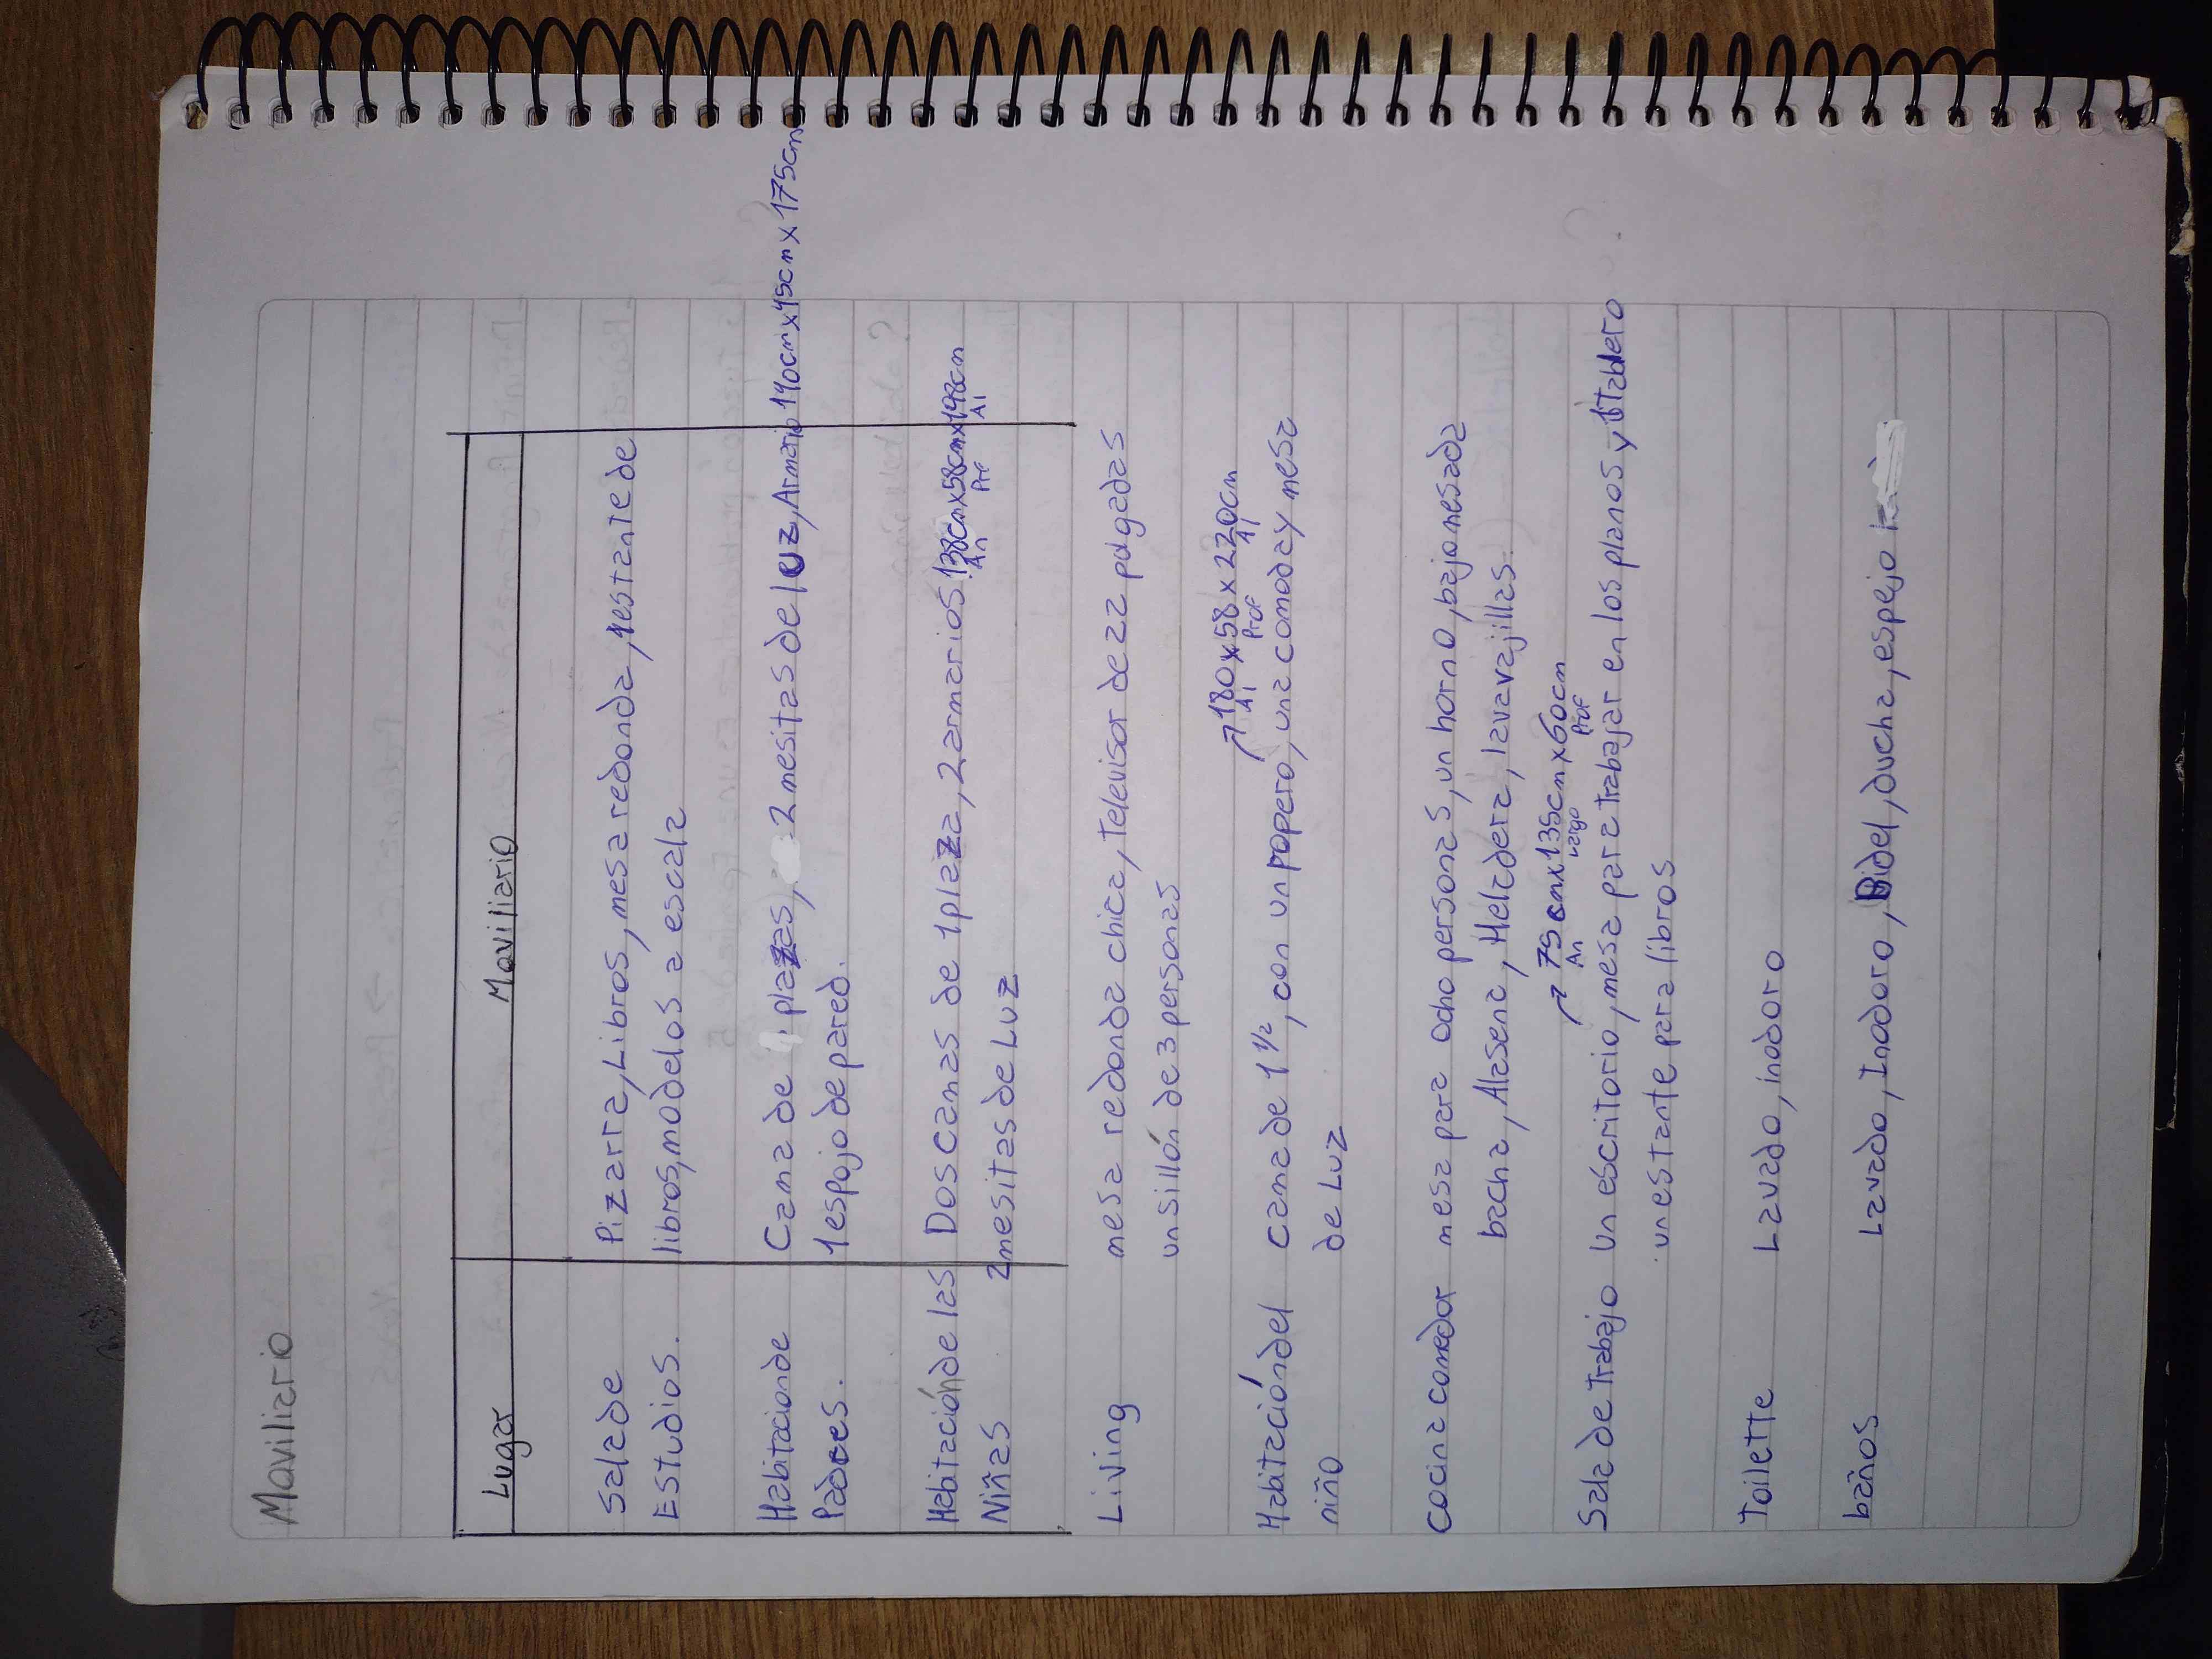 Maviliario
Lugar Maviliario
Sala de Pizarra, Libros, mesa redonda, 1 estante de
Estudios. libros, modelos a escala
Habitacion de Cama de plazas, 2 mesitas de luz, Armario 190cm x 45cm x 175cm
Padres. 1 espojo de pared.
Habitación de las Dos camas de 1 plaza, 2 armarios. 138cm x 58cm x 198cm
An Prf Al
Niñas 2 mesitas de Luz
Living mesa redonda chica, Televisor de 22 pulgadas
un sillón de 3 personas
180 x 58 x 220cm
Al Prof Al
Habitación del cama de 1 1/2, con un ropero, una comoda y mesa
niño de Luz
Cocina comedor mesa para ocho personas, un horno, bajo mesada
bacha, Alasena, Heladera, lavavajillas.
75 cm x 135cm x 60cm
An Largo Prof
Sala de Trabajo Un escritorio, mesa para trabajar en los planos y 1 Tablero
un estante para libros
Toilette Lavado, inodoro
baños Lavado, Inodoro, Bidel, ducha, espejo